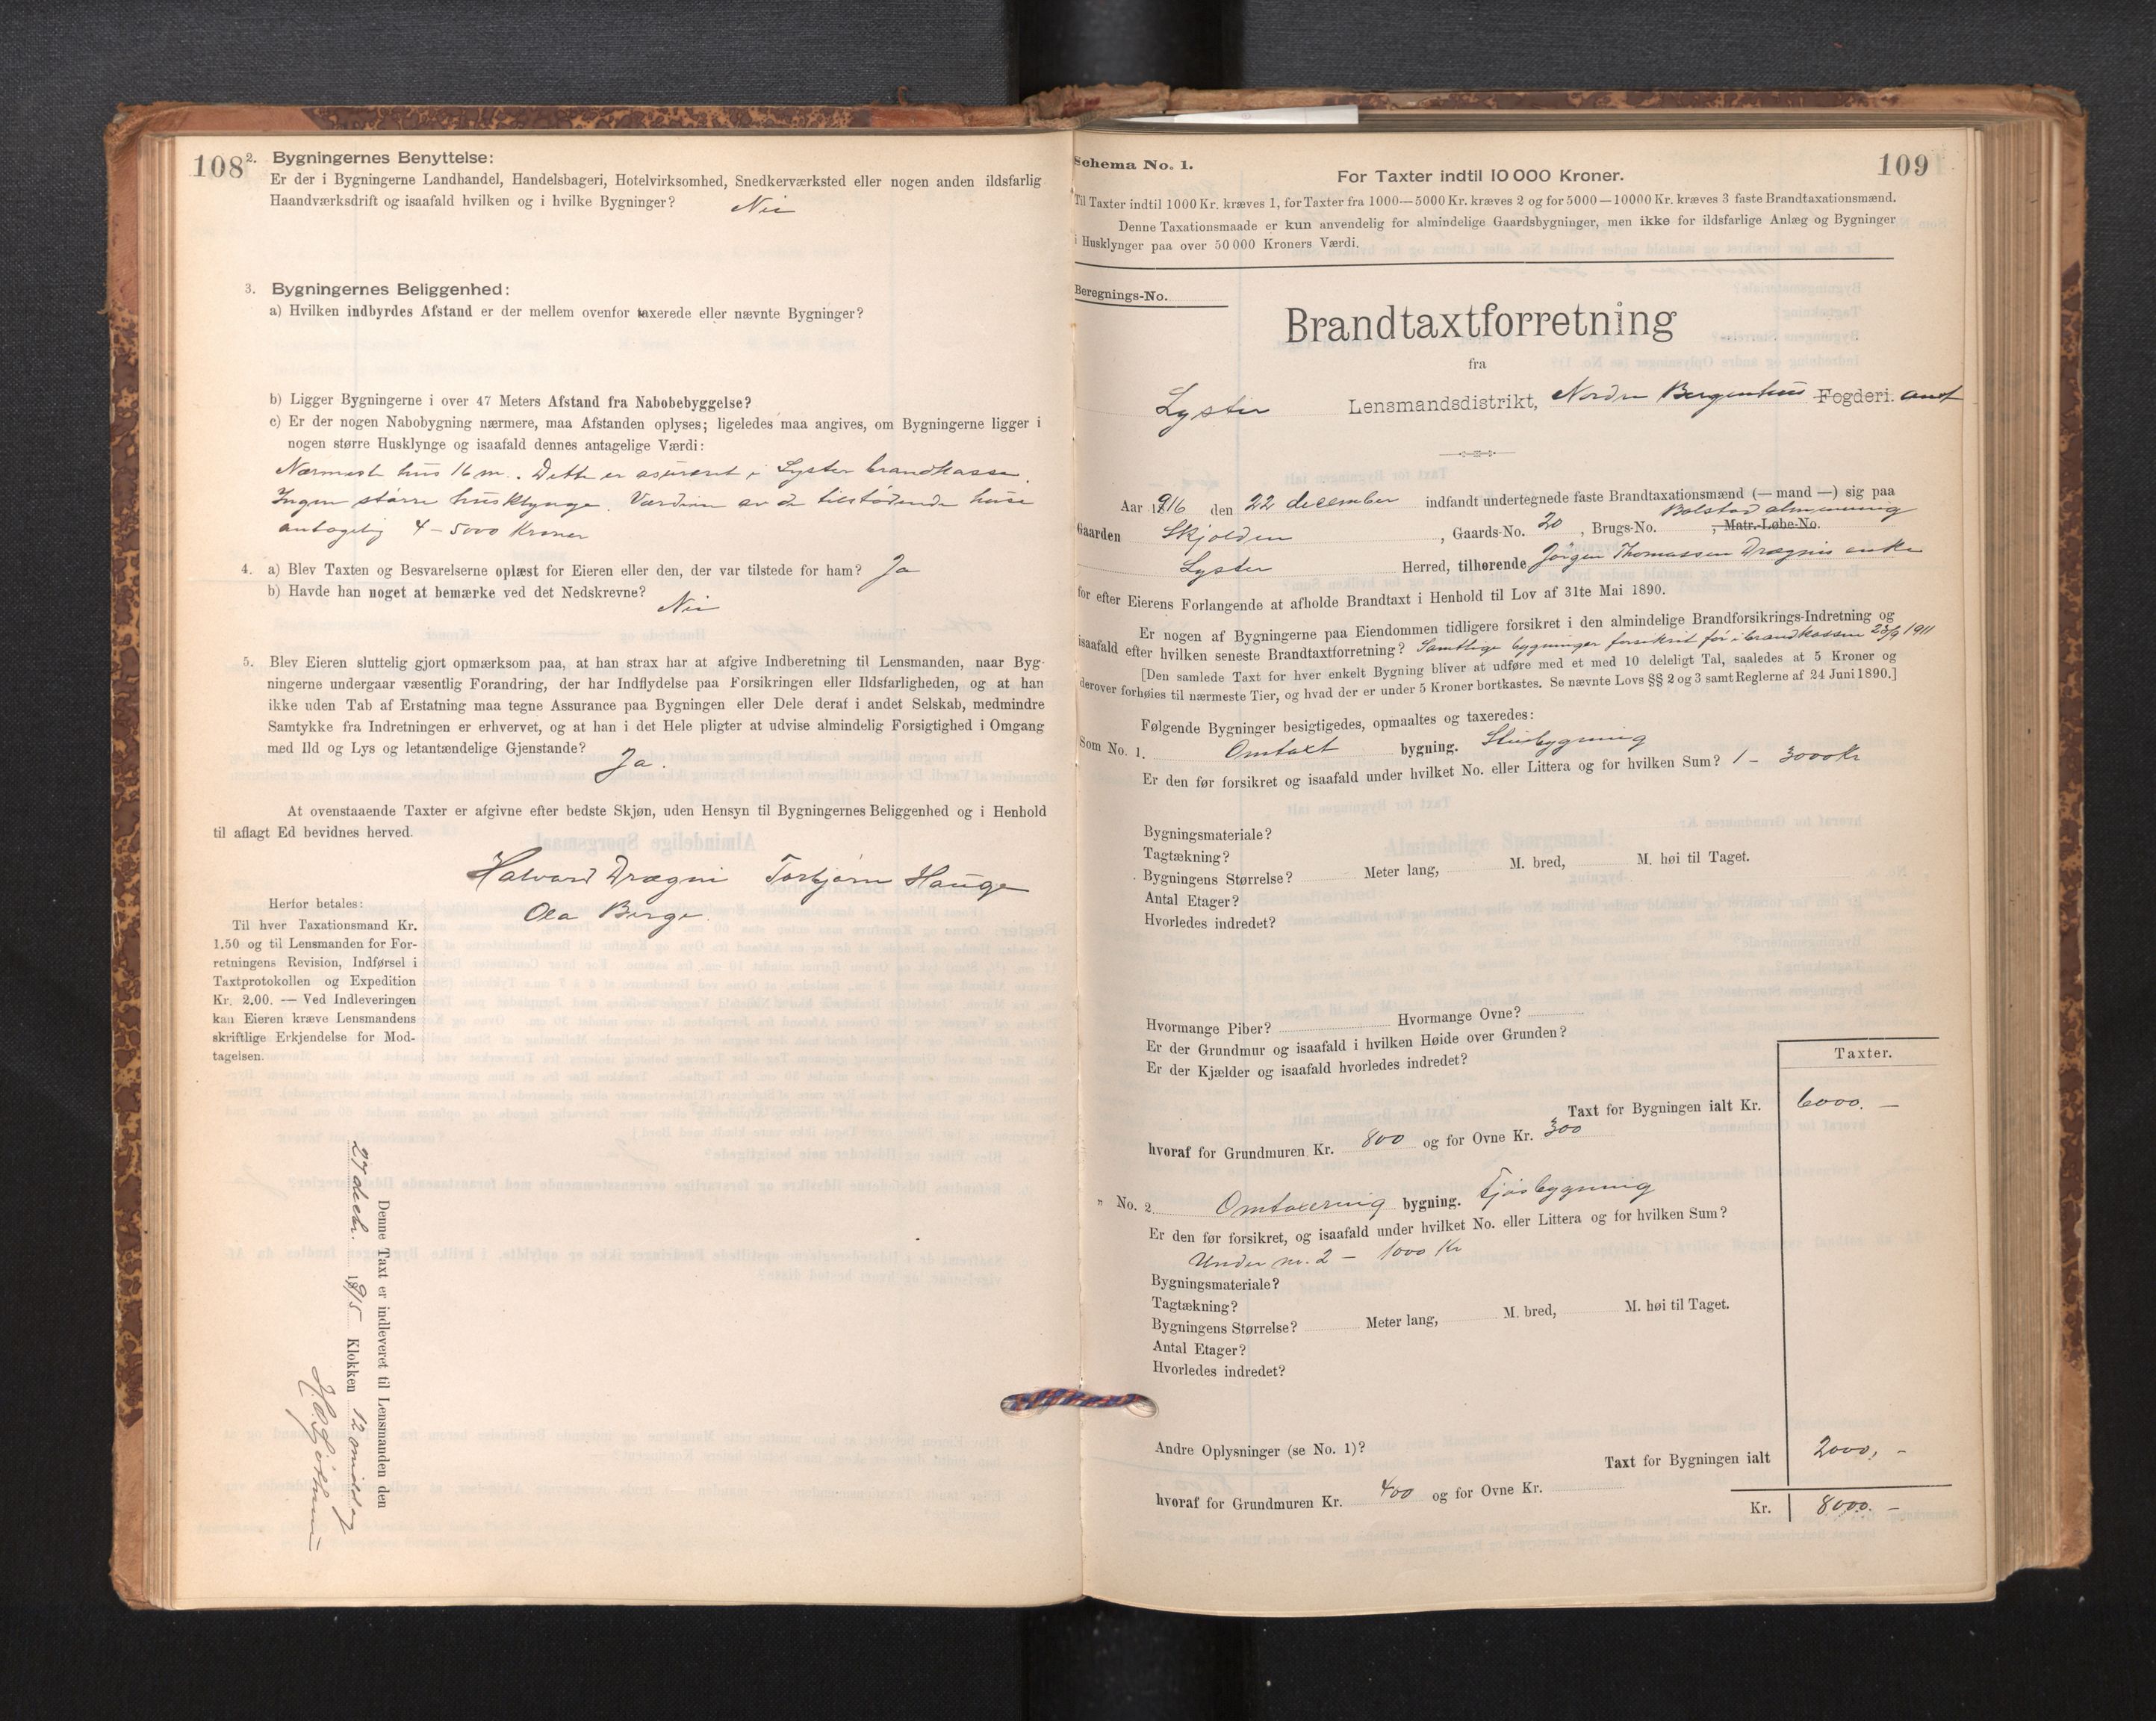 108
2. Bygningernes Benyttelse:
Er der i Bygningerne Landhandel, Handelsbageri, Hotelvirksomhed, Snedkerværksted eller nogen anden ildsfarlig
Haandværksdrift og isaafald hvilken og i hvilke Bygninger? Nei
3. Bygningernes Beliggenhed:
a) Hvilken indbyrdes Afstand er der mellem ovenfor taxerede eller nævnte Bygninger?
b) Ligger Bygningerne i over 47 Meters Afstand fra Nabobebyggelse?
c) Er der nogen Nabobygning nærmere, maa Afstanden oplyses; ligeledes maa angives, om Bygningerne ligger i
nogen større Husklynge og isaafald dennes antagelige Værdi:
Nærmeste hus 16 m. Dette er asureret i Lyster brandkasse.
Ingen større husklynge. Værdien av de tilstødende huse
antagelig 4-5000 Kroner
4. a) Blev Taxten og Besvarelserne oplæst for Eieren eller den, der var tilstede for ham? Ja
b) Havde han noget at bemærke ved det Nedskrevne? Nei
5. Blev Eieren sluttelig gjort opmærksom paa, at han strax har at afgive Indberetning til Lensmanden, naar Byg-
ningerne undergaar væsentlig Forandring, der har Indflydelse paa Forsikringen eller Ildsfarligheden, og at han
ikke uden Tab af Erstatning maa tegne Assurance paa Bygningen eller Dele deraf i andet Selskab, medmindre
Samtykke fra Indretningen er erhvervet, og at han i det Hele pligter at udvise almindelig Forsigtighed i Omgang
med Ild og Lys og letantændelige Gjenstande? Ja.
At ovenstaaende Taxter er afgivne efter bedste Skjøn, uden Hensyn til Bygningernes Beliggenhed og i Henhold
til aflagt Ed bevidnes herved.
Halvard Drægni Torbjørn Hauge
Ola Berge.
Herfor betales:
Til hver Taxationsmand Kr.
1.50 og til Lensmanden for For-
retningens Revision, Indførsel i
Taxtprotokollen og Expedition
Kr. 2.00. — Ved Indleveringen
kan Eieren kræve Lensmandens
skriftlige Erkjendelse for Mod-
tagelsen.
Denne Taxt er indleveret til Lensmanden den
27 decbr. 1915 Klokken 12 middag
Schema No. 1.
109
For Taxter indtil 10 000 Kroner.
Til Taxter indtil 1000 Kr. kræves 1, for Taxter fra 1000—5000 Kr. kræves 2 og for 5000—10000 Kr. kræves 3 faste Brandtaxationsmænd.
Denne Taxationsmaade er kun anvendelig for almindelige Gaardsbygninger, men ikke for ildsfarlige Anlæg og Bygninger
i Husklynger paa over 50 000 Kroners Værdi.
Beregnings-No.
Brandtaxtforretning
fra
Lyster Lensmandsdistrikt, Nordre Bergenhus Fogderi. amt
Aar 1916 den 22 december indfandt undertegnede faste Brandtaxationsmænd (— mand —) sig paa
Bolstad almenning
Gaarden Skjolden, Gaards-No. 20, Brugs-No. , Matr.-Løbe-No.
Lyster Herred, tilhørende Jørgen Thomassen Drægnis enke
for efter Eierens Forlangende at afholde Brandtaxt i Henhold til Lov af 31te Mai 1890.
Er nogen af Bygningerne paa Eiendommen tidligere forsikret i den almindelige Brandforsikrings-Indretning og
isaafald efter hvilken seneste Brandtaxtforretning? Samtlige bygninger forsikrit før i brandkassen 23/9 1911
[Den samlede Taxt for hver enkelt Bygning bliver at udføre med et med 10 deleligt Tal, saaledes at 5 Kroner og
derover forhøies til nærmeste Tier, og hvad der er under 5 Kroner bortkastes. Se nævnte Lovs §§ 2 og 3 samt Reglerne af 24 Juni 1890.]
Følgende Bygninger besigtigedes, opmaaltes og taxeredes:
Som No. 1. Omtaxt bygning. Stuebygning
Er den før forsikret og isaafald under hvilket No. eller Littera og for hvilken Sum? 1 - 3000 Kr
Bygningsmateriale?
Tagtækning?
Bygningens Størrelse? Meter lang, M. bred, M. høi til Taget.
Antal Etager?
Hvorledes indredet?
Hvormange Piber? Hvormange Ovne?
Er der Grundmur og isaafald i hvilken Høide over Grunden?
Er der Kjælder og isaafald hvorledes indredet?
Taxter.
Taxt for Bygningen ialt Kr. 6000. —
hvoraf for Grundmuren Kr. 800 og for Ovne Kr. 300
" No. 2. Omtaxering bygning. Fjøsbygning
Er den før forsikret, og isaafald under hvilket No. eller Littera og for hvilken Sum?
Under nr. 2 — 1000 Kr
Bygningsmateriale?
Tagtækning?
Bygningens Størrelse? Meter lang, M. bred, M. høi til Taget.
Antal Etager?
Hvorledes indredet?
Andre Oplysninger (se No. 1)?
Taxt for Bygningen ialt 2000, -
hvoraf for Grundmuren Kr. 400 og for Ovne Kr.
Kr. 8000. -